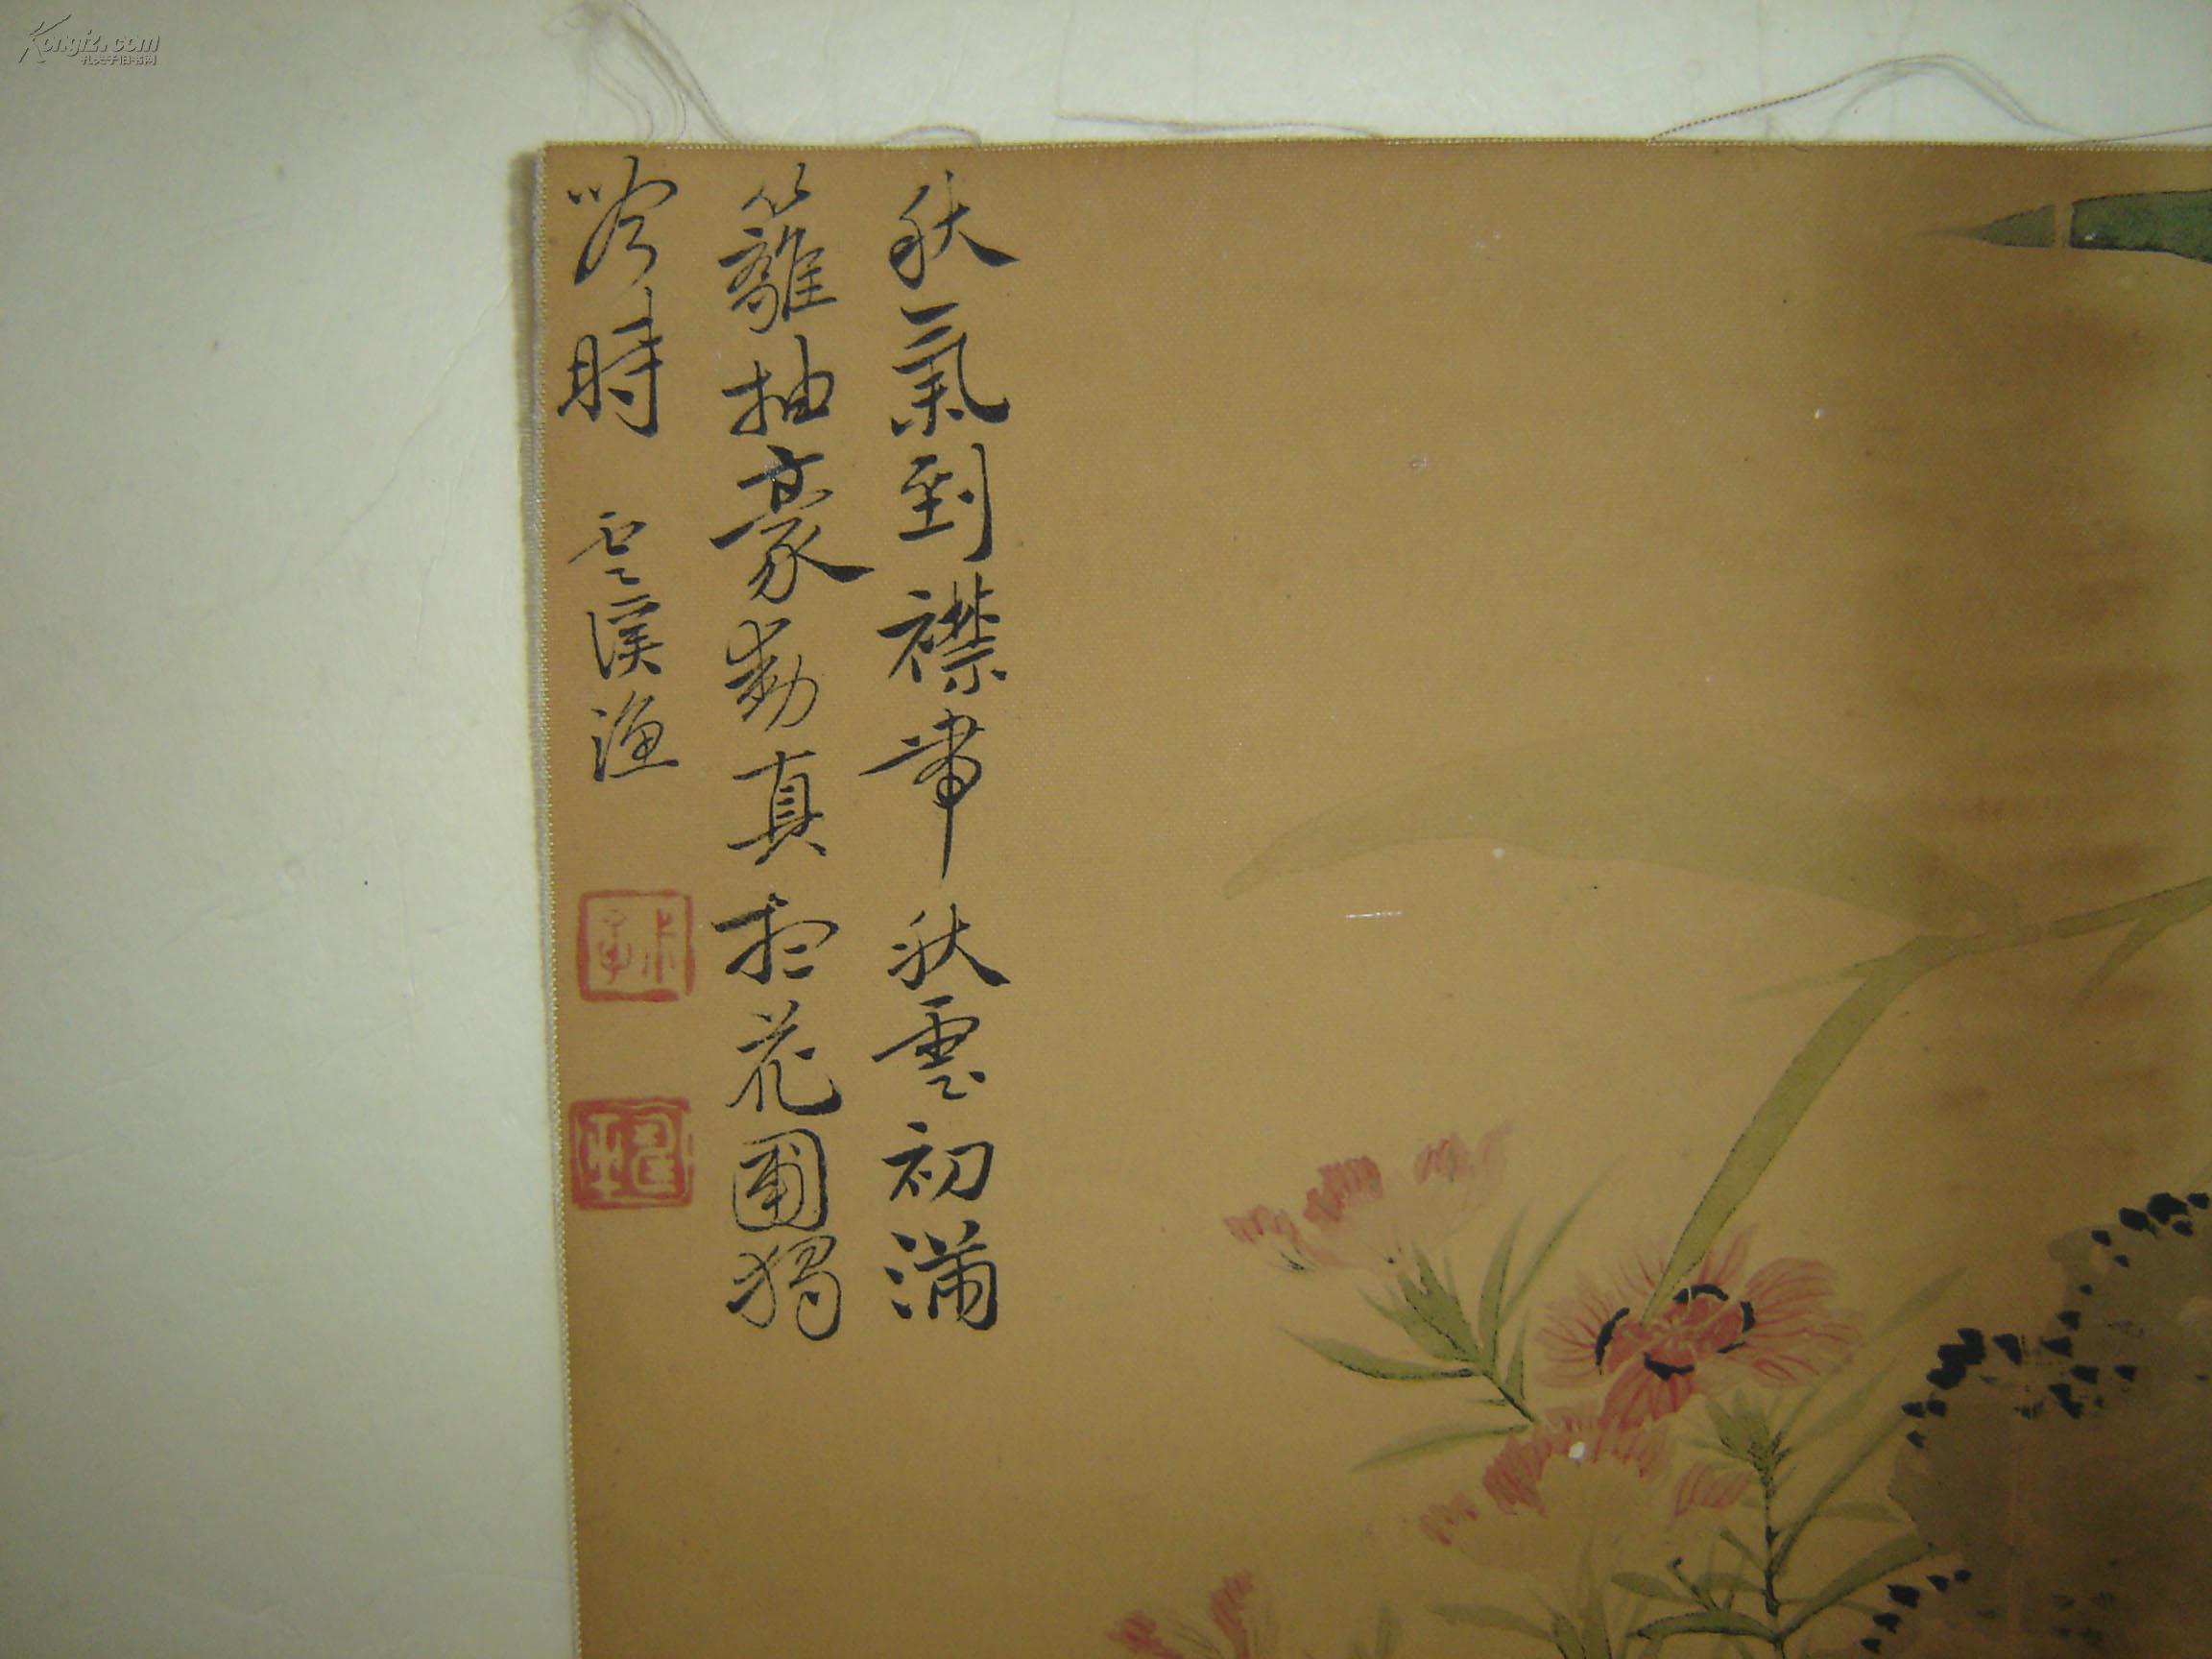 秋氣到襟帶秋雲初滿
籬抽豪勤真想花圃獨
吟時 雲溪漁
Kongfz.com
孔夫子旧书网